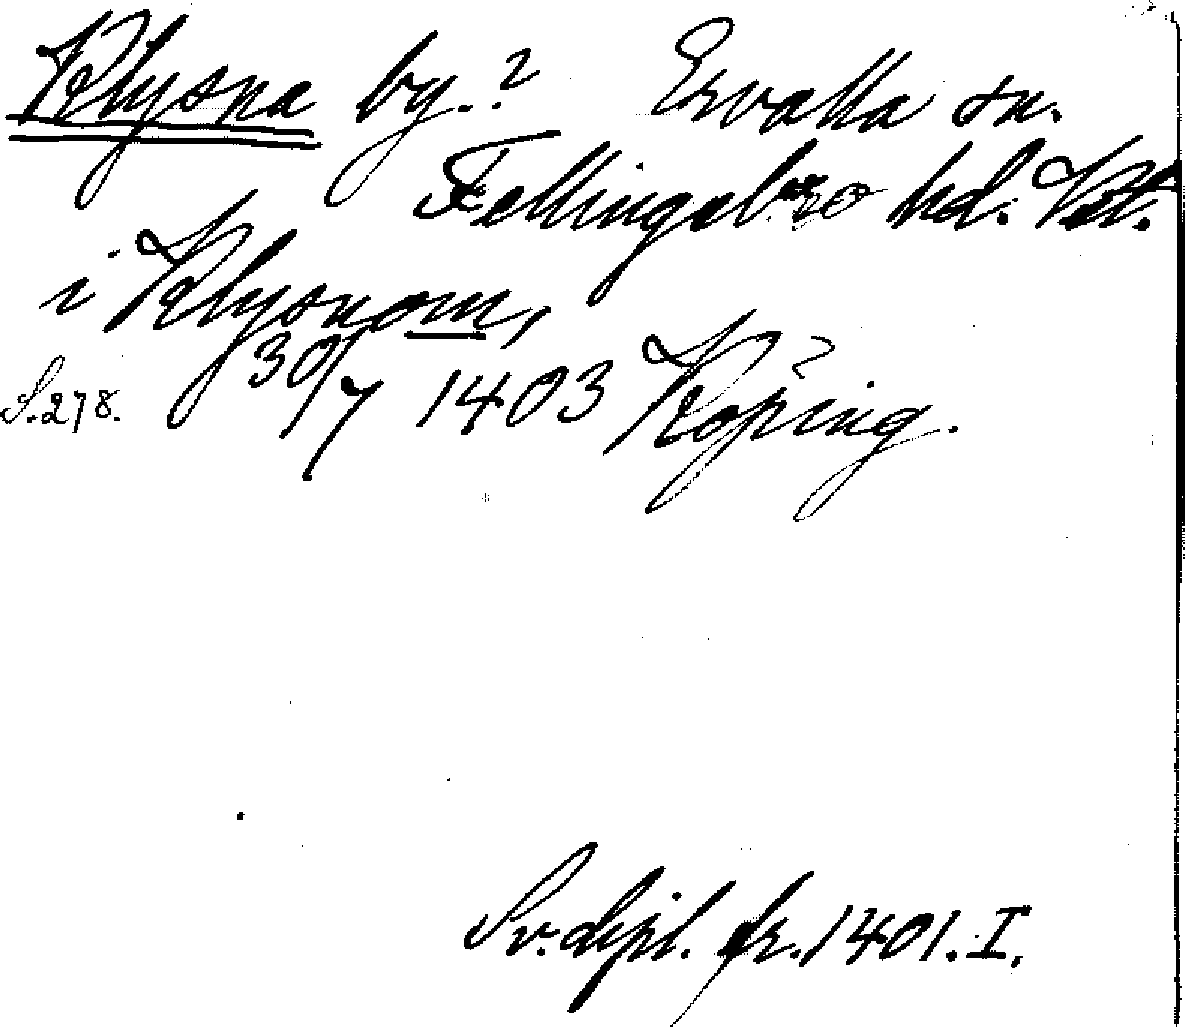 Klysna by.? Ervalla sn.
Fellingsbro hd. Vstm.
i Klysnom,
S. 278. 30/7 1403 Köping.
Sv. dipl. fr. 1401. I.